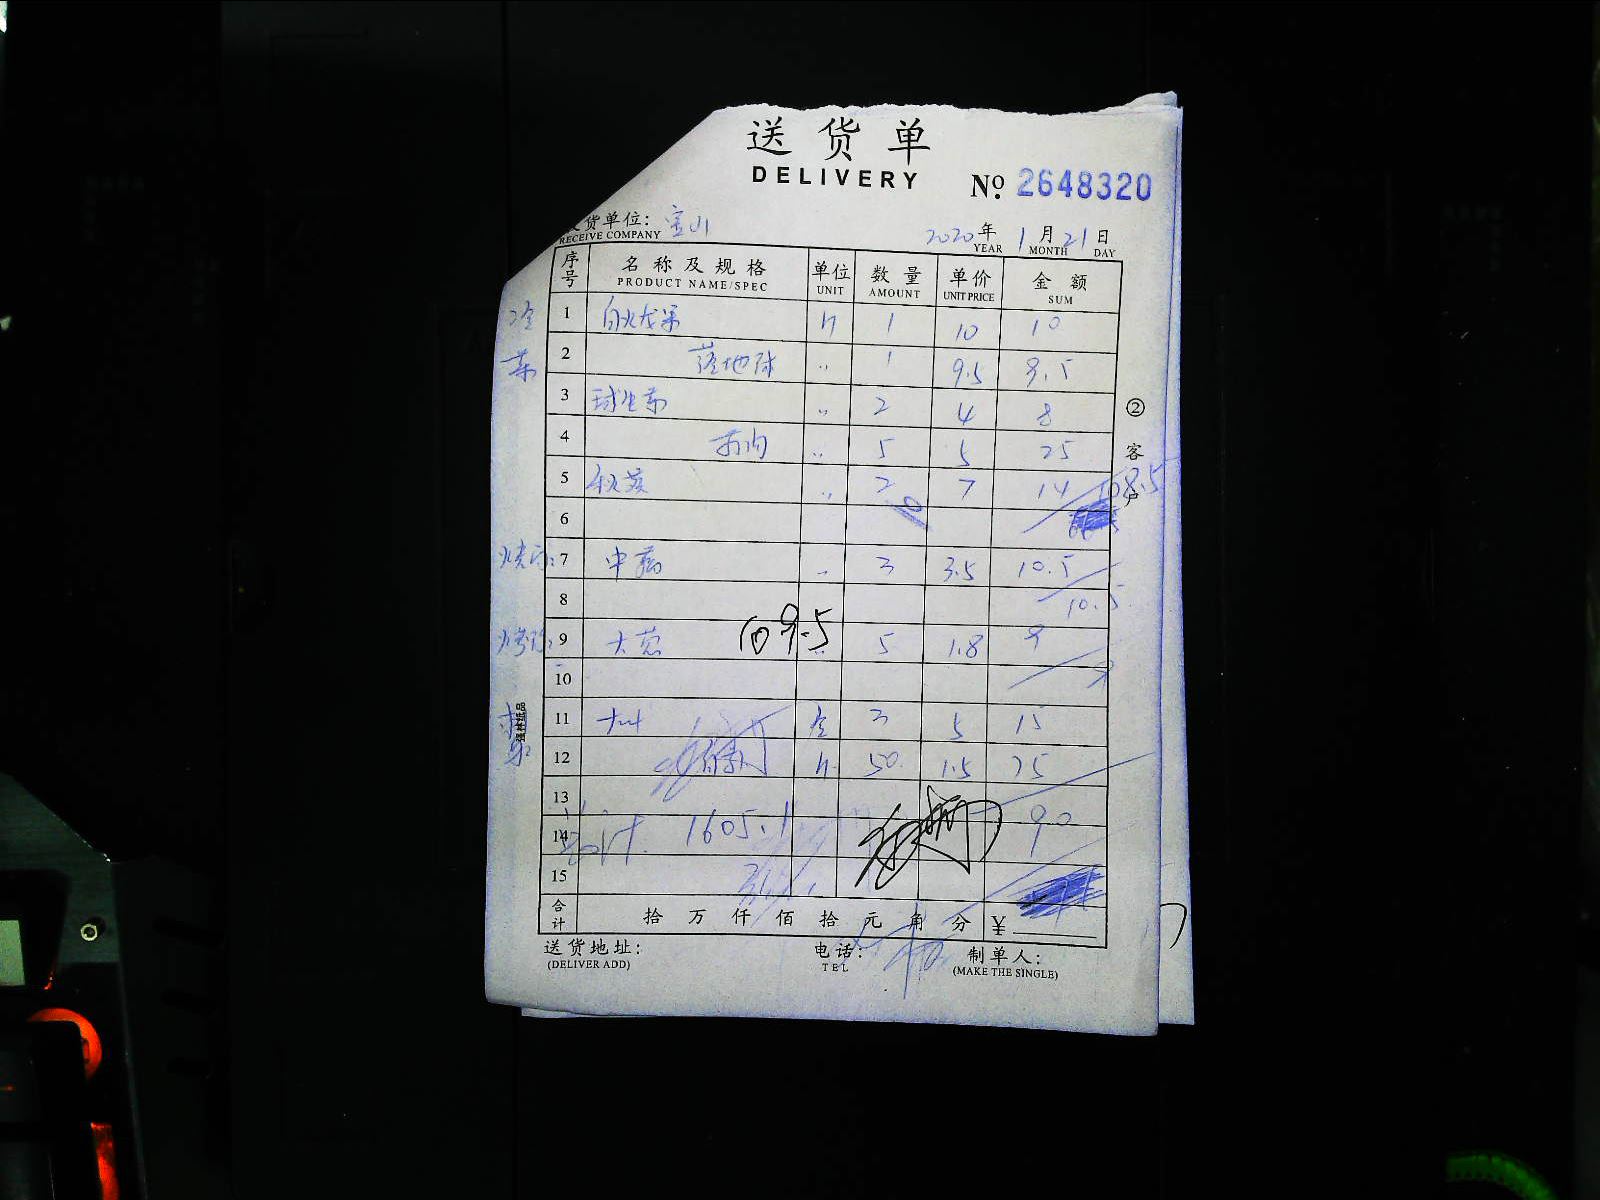 送货单
DELIVERY
№ 2648320
货单位: 宝山
RECEIVE COMPANY
2020年 1月 21日
YEAR MONTH DAY
序号 名称及规格 单位 数量 单价 金额
PRODUCT NAME/SPEC UNIT AMOUNT UNIT PRICE SUM
冷菜
1 白火龙果 斤 1 10 10
2 1 9.5 9.5
3 球生菜 2 4 8
4 5 5 25
② 客户
5 秋葵 2 7 14 108.5
6
7 中 3 3.5 10.5
8 10.5
9 大葱 5 1.8 9
109.5
10 9
强林纸品
11 3 5 15
12 斤 50 1.5 75
13 90
14 总计 1605.1
15
合计 拾 万 仟 佰 拾 元 角 分 ¥
送货地址: 电话: 制单人:
(DELIVER ADD) TEL (MAKE THE SINGLE)